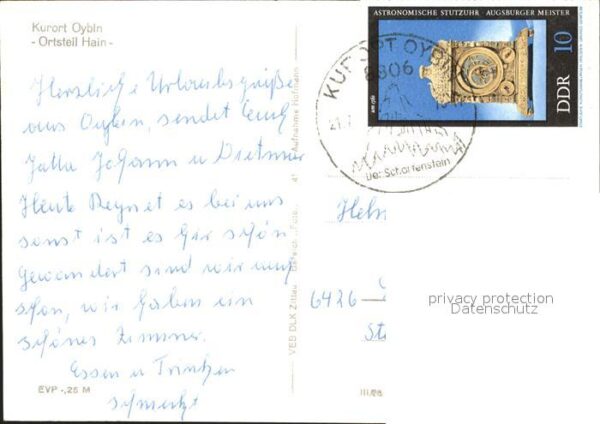 Kurort Oybin
- Ortsteil Hain -
Herzliche Urlaubsgrüße
aus Oybin, sendet Euch
Jutta Johann u Dietmar
Heute Regnet es bei uns
sonst ist es hir schön
Gewandert sind wir auch
schon, wir haben ein
schönes Zimmer.
Essen u Trinken
schmeckt
EVP -,25 M
VEB DLK Zittau
Aufnahme Hofmann
ASTRONOMISCHE STUTZUHR · AUGSBURGER MEISTER
um 1560
DDR 10
KURORT OYBIN
8806
Der Scharfenstein
6426
privacy protection
Datenschutz